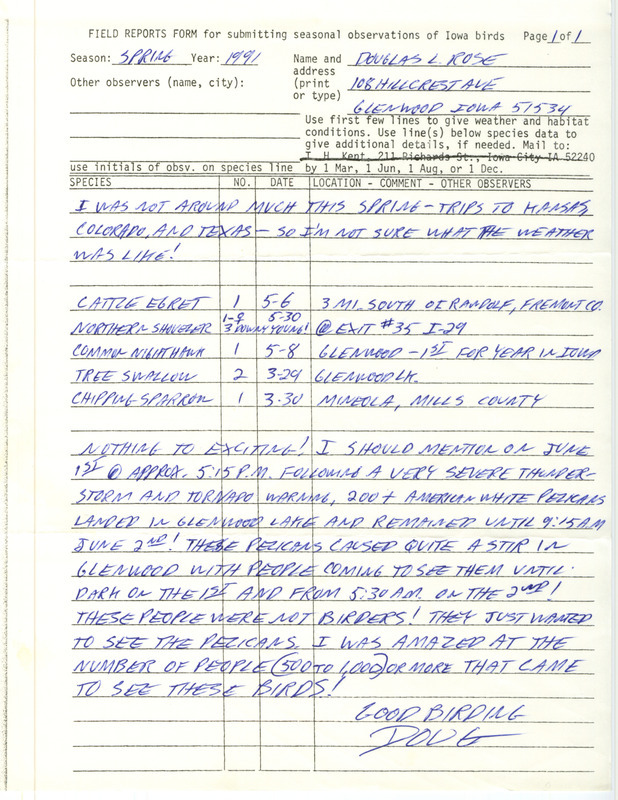 FIELD REPORTS FORM for submitting seasonal observations of Iowa birds Page 1 of 1
Season: SPRING Year: 1991 Name and DOUGLAS L. ROSE
address
Other observers (name, city): (print 108 HILLCREST AVE
or type)
GLENWOOD IOWA 51534
Use first few lines to give weather and habitat
conditions. Use line(s) below species data to
give additional details, if needed. Mail to:
T. H. Kent, 211 Richards St., Iowa City IA 52240
use initials of obsv. on species line by 1 Mar, 1 Jun, 1 Aug, or 1 Dec.
SPECIES NO. DATE LOCATION - COMMENT - OTHER OBSERVERS
I WAS NOT AROUND MUCH THIS SPRING - TRIPS TO KANSAS,
COLORADO, AND TEXAS - SO I'M NOT SURE WHAT THE WEATHER
WAS LIKE!
CATTLE EGRET 1 5-6 3 MI. SOUTH OF RANDOLF, FREMONT CO.
NORTHERN SHOVELER 1-♀ 5-30 3 DOWNY YOUNG! @ EXIT #35 I-29
COMMON NIGHTHAWK 1 5-8 GLENWOOD - 1ST FOR YEAR IN IOWA
TREE SWALLOW 2 3-29 GLENWOOD LK.
CHIPPING SPARROW 1 3-30 MINEOLA, MILLS COUNTY
NOTHING TO EXCITING! I SHOULD MENTION ON JUNE
1ST @ APPROX. 5:15 P.M. FOLLOWING A VERY SEVERE THUNDER-
STORM AND TORNADO WARNING, 200+ AMERICAN WHITE PELICANS
LANDED IN GLENWOOD LAKE AND REMAINED UNTIL 9:15 AM
JUNE 2ND! THESE PELICANS CAUSED QUITE A STIR IN
GLENWOOD WITH PEOPLE COMING TO SEE THEM UNTIL
DARK ON THE 1ST AND FROM 5:30 AM. ON THE 2ND!
THESE PEOPLE WERE NOT BIRDERS! THEY JUST WANTED
TO SEE THE PELICANS. I WAS AMAZED AT THE
NUMBER OF PEOPLE (500 TO 1,000) OR MORE THAT CAME
TO SEE THESE BIRDS!
GOOD BIRDING
DOUG